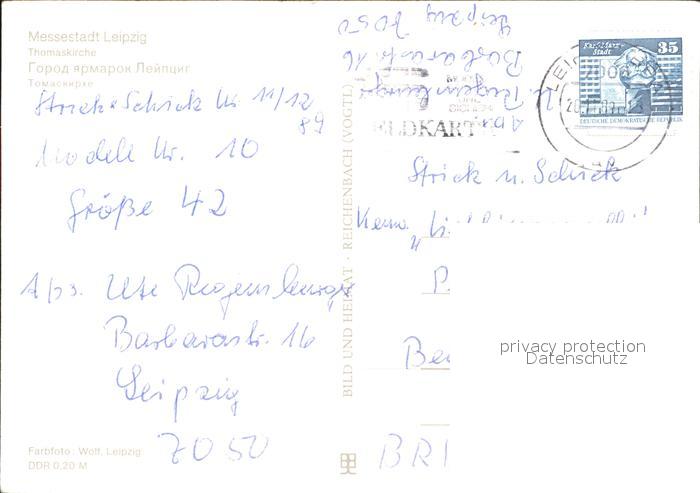 Messestadt Leipzig
Thomaskirche
Город ярмарок Лейпциг
Томаскирхе
Strick & Schick Nr. 11/12
89
Modell Nr. 10
Größe 42
Abs. Ute Regensburger
Barbarastr. 16
Leipzig
7050
Farbfoto: Wolf, Leipzig
DDR 0,20 M
BILD UND HEIMAT · REICHENBACH (VOGTL)
Abs.
U. Regensburger
Barbarastr. 16
Leipzig 7050
Karl-Marx-Stadt
35
DEUTSCHE DEMOKRATISCHE REPUBLIK
Strick u. Schick
Kenn.
privacy protection
Datenschutz